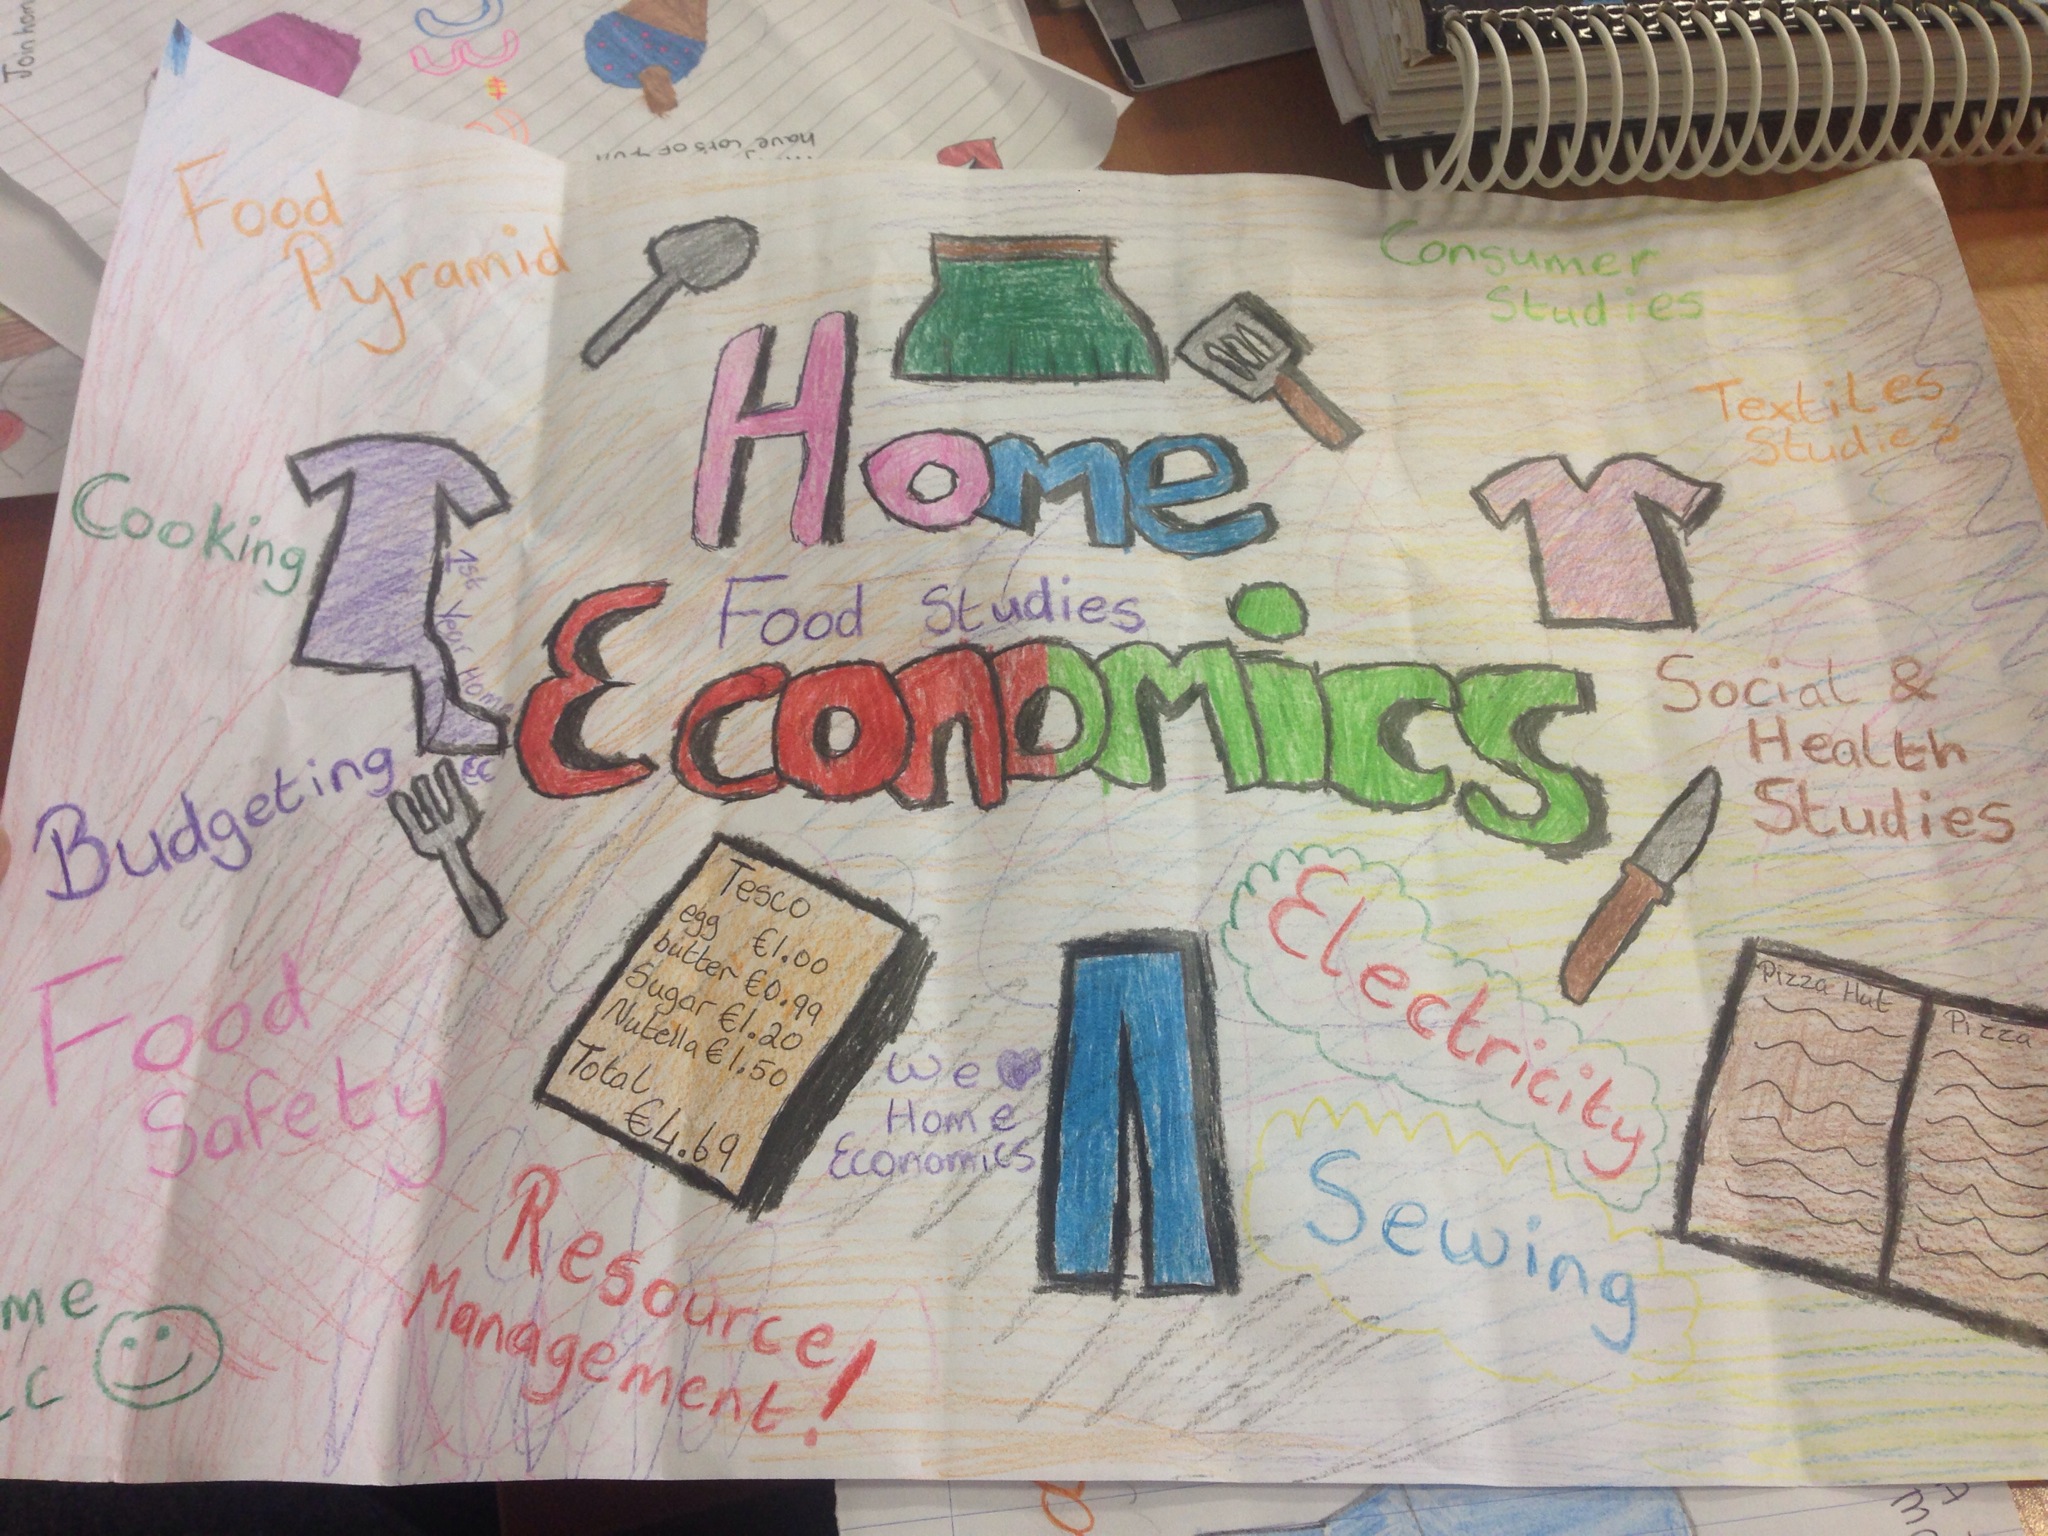 Join hom
have lots of fun
Food
Pyramid
Consumer
Studies
Textiles
Studies
Home
Cooking
1st Year Home
Ec
Food Studies
Economics
Social &
Health
Studies
Budgeting
Tesco
egg €1.00
butter €0.99
Sugar €1.20
Nutella €1.50
Total
€4.69
Electricity
Pizza Hut
Pizza
Food
Safety
We
Home
Economics
Sewing
Resource
Management!
me